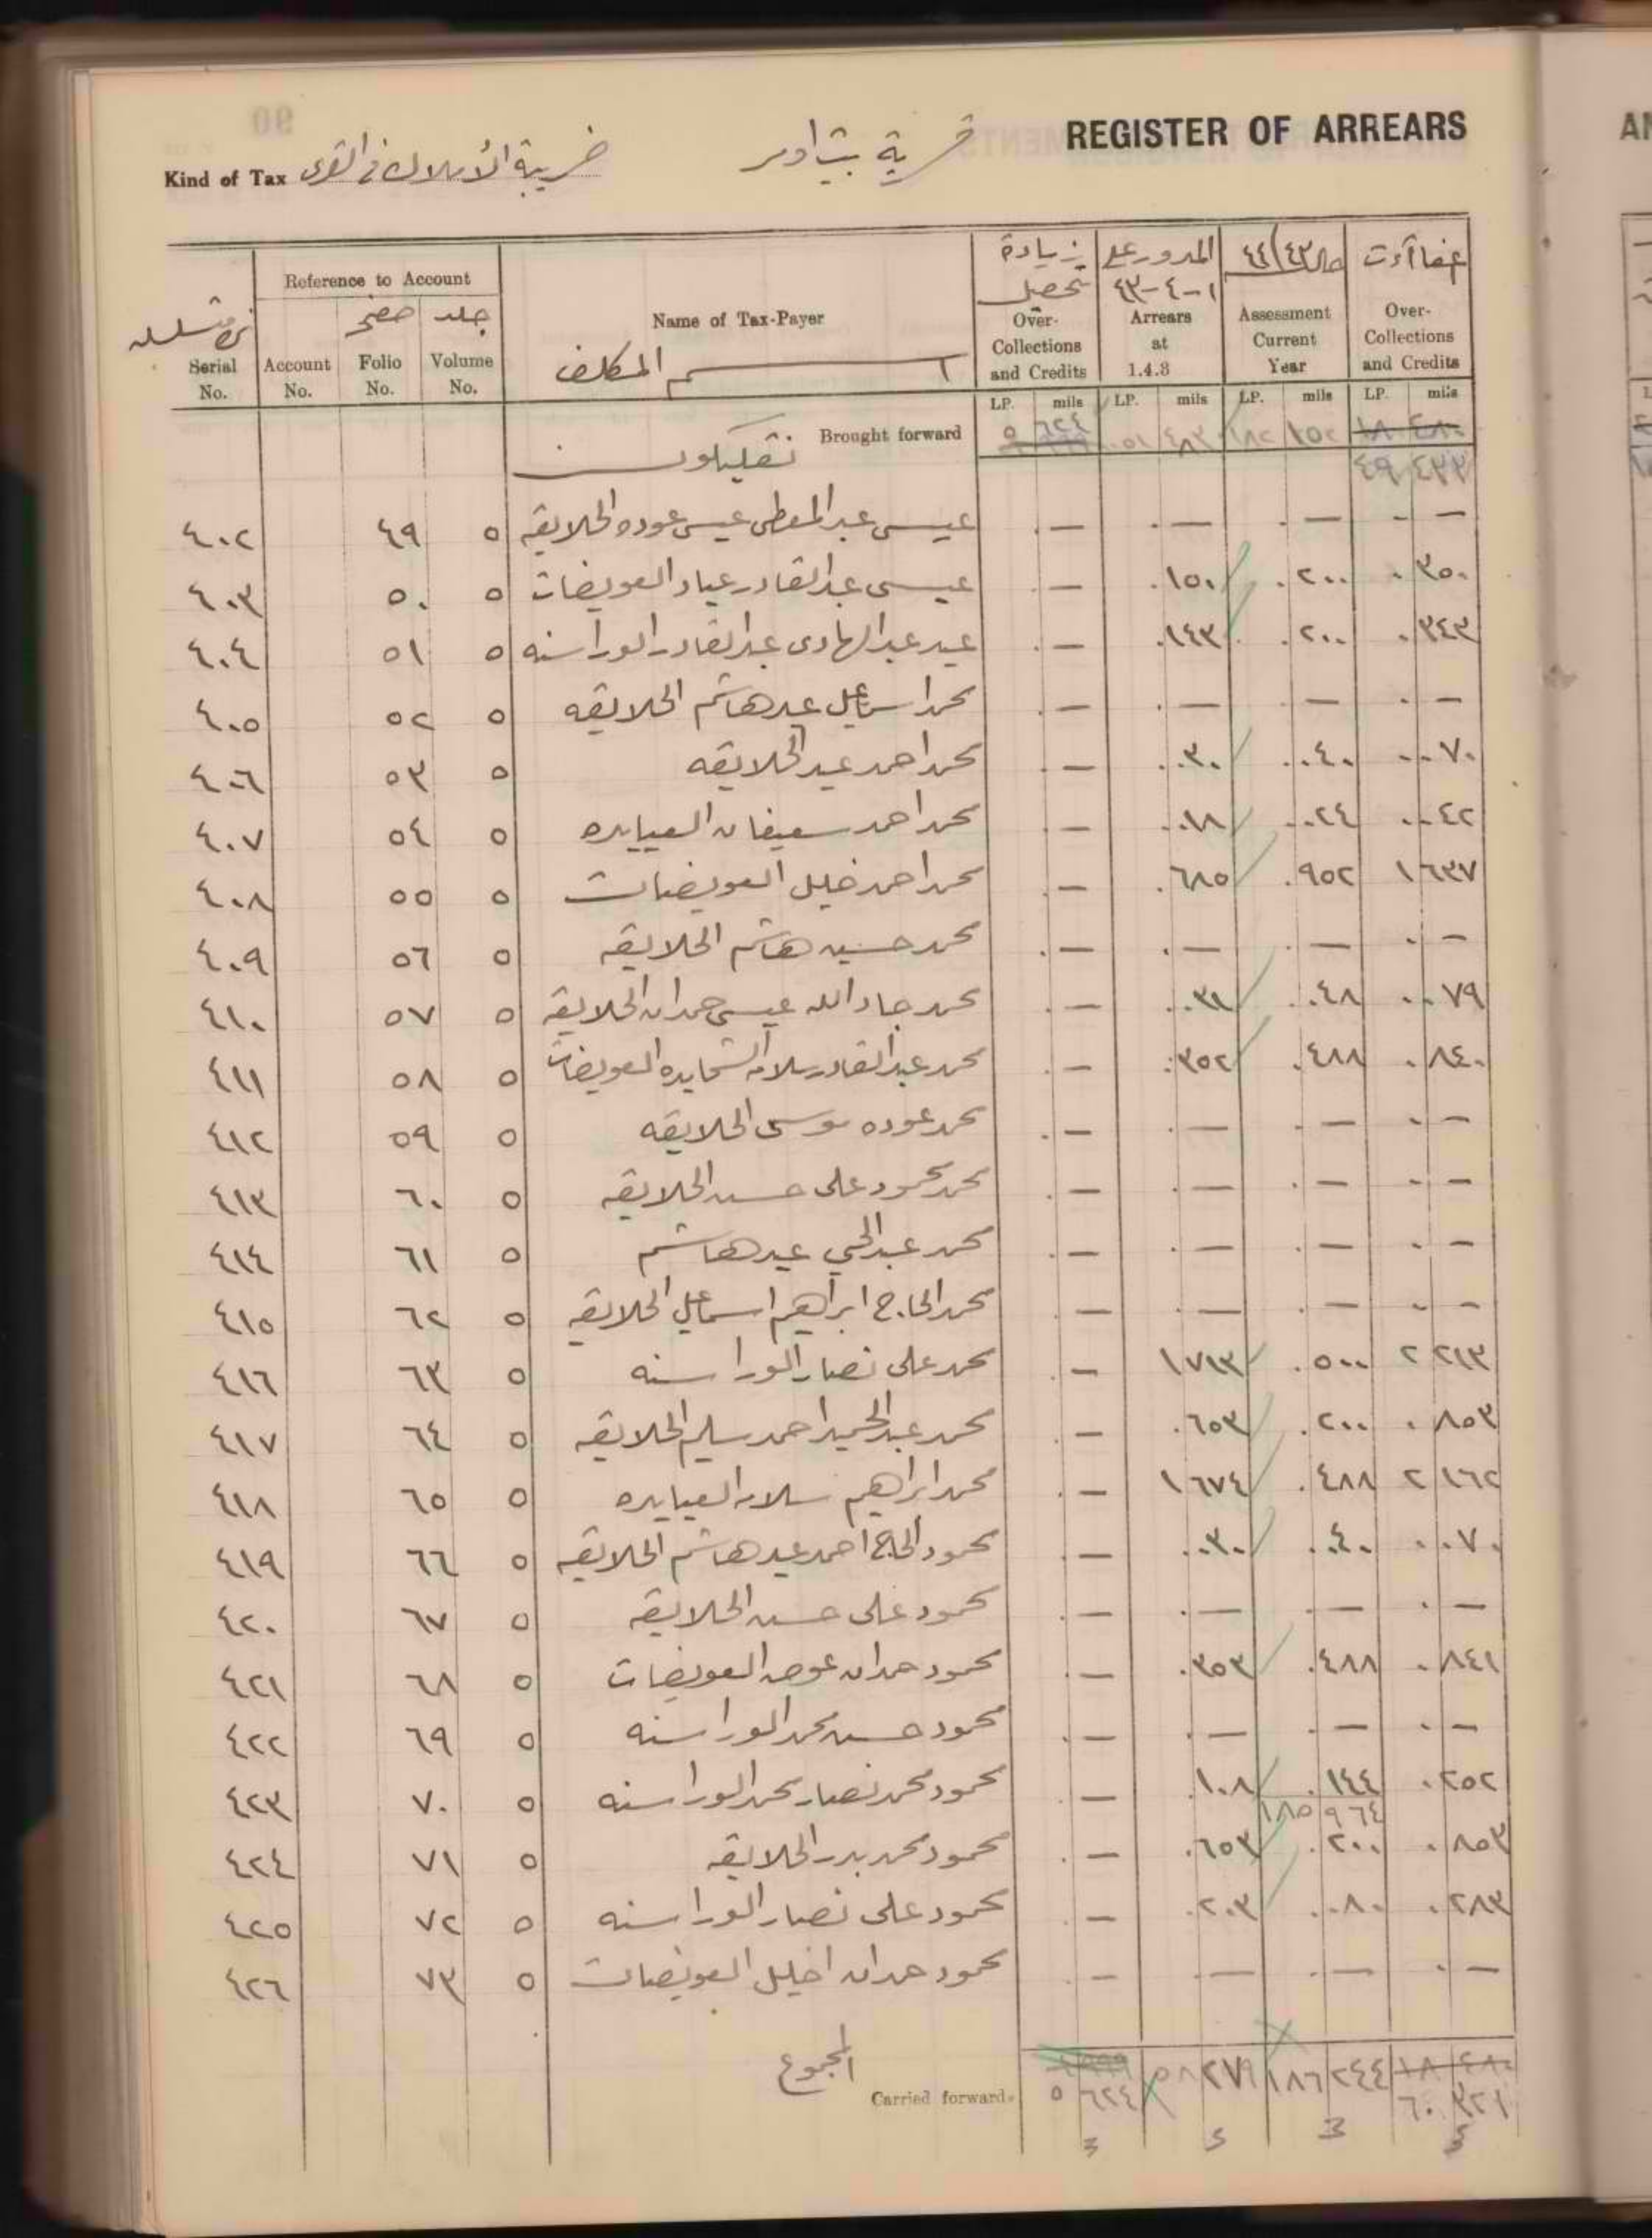 REGISTER OF ARREARS
قرية
Kind of Tax ضريبة الأملاك في القرى
Serial No.
Reference to Account
Account No. صفحه Folio No. جلد Volume No.
Name of Tax-Payer
اسم المكلف
زيادة تحصيل Over-Collections and Credits LP. mils
المدور على ١-٤-٤٣ Arrears at 1.4.3 LP. mils
٤٣/٤٤ Assessment Current Year LP. mils
Over-Collections and Credits LP. mils
Brought forward ٥ ٦٢٤ ٤٩ ٤٣٣
٤٠٢ ٤٩ ٥ عيسى عبد المعطي عيسى عوده الحلايقه ٠ — ٠ — ٠ — ٠ —
٤٠٣ ٥٠ ٥ عيسى عبد القادر عياد العويضات ٠ — ٠ ١٥٠ ٠ ٢٠٠ ٠ ٣٥٠
٤٠٤ ٥١ ٥ عيد عبد الهادي عبد القادر الوراسنه ٠ — ٠ ١٤٣ ٠ ٢٠٠ ٠ ٣٤٣
٤٠٥ ٥٢ ٥ محمد اسماعيل عيد هاشم الحلايقه ٠ — ٠ — ٠ — ٠ —
٤٠٦ ٥٣ ٥ محمد احمد عيد الحلايقه ٠ — ٠ ٠٣٠ ٠ ٠٤٠ ٠ ٠٧٠
٤٠٧ ٥٤ ٥ محمد احمد سعيفان العيايده ٠ — ٠ ٠١٨ ٠ ٠٢٤ ٠ ٠٤٢
٤٠٨ ٥٥ ٥ محمد احمد خليل العويضات ٠ — ٠ ٦٨٥ ٠ ٩٥٢ ١ ٦٣٧
٤٠٩ ٥٦ ٥ محمد حسين هاشم الحلايقه ٠ — ٠ — ٠ — ٠ —
٤١٠ ٥٧ ٥ محمد جاد الله عيسى حمدان الحلايقه ٠ — ٠ ٠٣١ ٠ ٠٤٨ ٠ ٠٧٩
٤١١ ٥٨ ٥ محمد عبد القادر سلامه الشحايده العويضات ٠ — ٠ ٣٥٢ ٠ ٤٨٨ ٠ ٨٤٠
٤١٢ ٥٩ ٥ محمد عوده موسى الحلايقه ٠ — ٠ — ٠ — ٠ —
٤١٣ ٦٠ ٥ محمد محمود علي حسن الحلايقه ٠ — ٠ — ٠ — ٠ —
٤١٤ ٦١ ٥ محمد عبد الحي عيد هاشم ٠ — ٠ — ٠ — ٠ —
٤١٥ ٦٢ ٥ محمد الحاج ابراهيم اسماعيل الحلايقه ٠ — ٠ — ٠ — ٠ —
٤١٦ ٦٣ ٥ محمد علي نصار الوراسنه ٠ — ١ ٧١٣ ٠ ٥٠٠ ٢ ٢١٣
٤١٧ ٦٤ ٥ محمد عبد الحميد احمد سليم الحلايقه ٠ — ٠ ٦٥٣ ٠ ٢٠٠ ٠ ٨٥٣
٤١٨ ٦٥ ٥ محمد ابراهيم سلامه العيايده ٠ — ١ ٦٧٤ ٠ ٤٨٨ ٢ ١٦٢
٤١٩ ٦٦ ٥ محمود الحاج احمد عيد هاشم الحلايقه ٠ — ٠ ٠٣٠ ٠ ٠٤٠ ٠ ٠٧٠
٤٢٠ ٦٧ ٥ محمود علي حسن الحلايقه ٠ — ٠ — ٠ — ٠ —
٤٢١ ٦٨ ٥ محمود حمدان عوض العويضات ٠ — ٠ ٣٥٣ ٠ ٤٨٨ ٠ ٨٤١
٤٢٢ ٦٩ ٥ محمود حسين محمد الوراسنه ٠ — ٠ — ٠ — ٠ —
٤٢٣ ٧٠ ٥ محمود محمد نصار محمد الوراسنه ٠ — ٠ ١٠٨ ٠ ١٤٤ ٠ ٢٥٢
١٨٥ ٩٦٤
٤٢٤ ٧١ ٥ محمود محمد بدر الحلايقه ٠ — ٠ ٦٥٣ ٠ ٢٠٠ ٠ ٨٥٣
٤٢٥ ٧٢ ٥ محمود علي نصار الوراسنه ٠ — ٠ ٢٠٣ ٠ ٠٨٠ ٠ ٢٨٣
٤٢٦ ٧٣ ٥ محمود حمدان اخليل العويضات ٠ — ٠ — ٠ — ٠ —
المجموع
Carried forward ٥ ٦٢٤ ٥٨ ٢٧٩ ١٨٦ ٢٤٤ ٦٠ ٣٢١